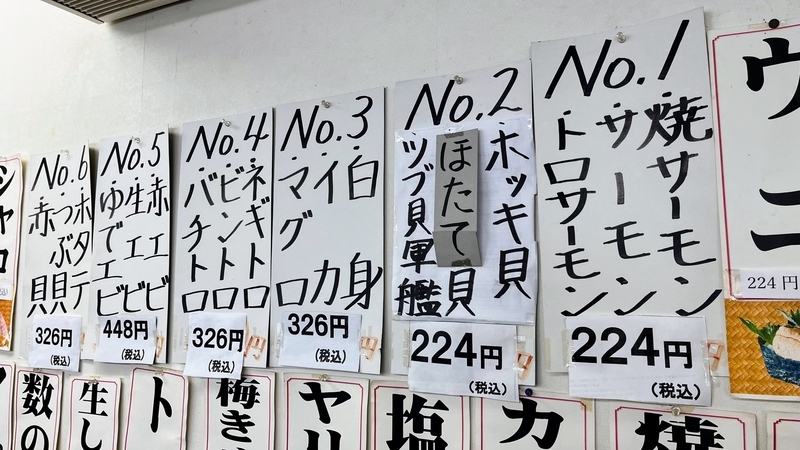 ウニ
224円
No.1
・焼サーモン
・サーモン
・トロサーモン
224円
(税込)
No.2
・ホッキ貝
ほたて貝
・ツブ貝軍艦
224円
(税込)
No.3
・白身
・イカ
・マグロ
326円
(税込)
No.4
・ネギトロ
・ビントロ
・バチトロ
326円
(税込)
No.5
・赤エビ
・生エビ
・ゆでエビ
448円
(税込)
No.6
・ホタテ
・つぶ貝
・赤貝
326円
(税込)
シャコ
焼
カ
塩
ヤリ
梅き
ト
生し
数の